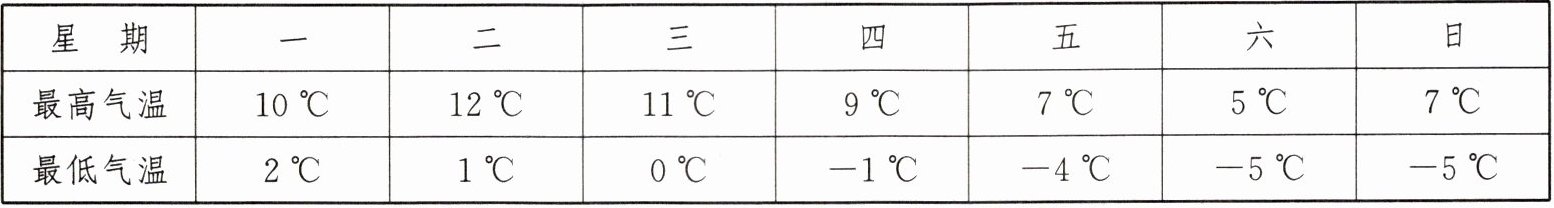 星 期 一 二 三 四 五 六 日
最高气温 10 ℃ 12 ℃ 11 ℃ 9 ℃ 7 ℃ 5 ℃ 7 ℃
最低气温 2 ℃ 1 ℃ 0 ℃ －1 ℃ －4 ℃ －5 ℃ －5 ℃